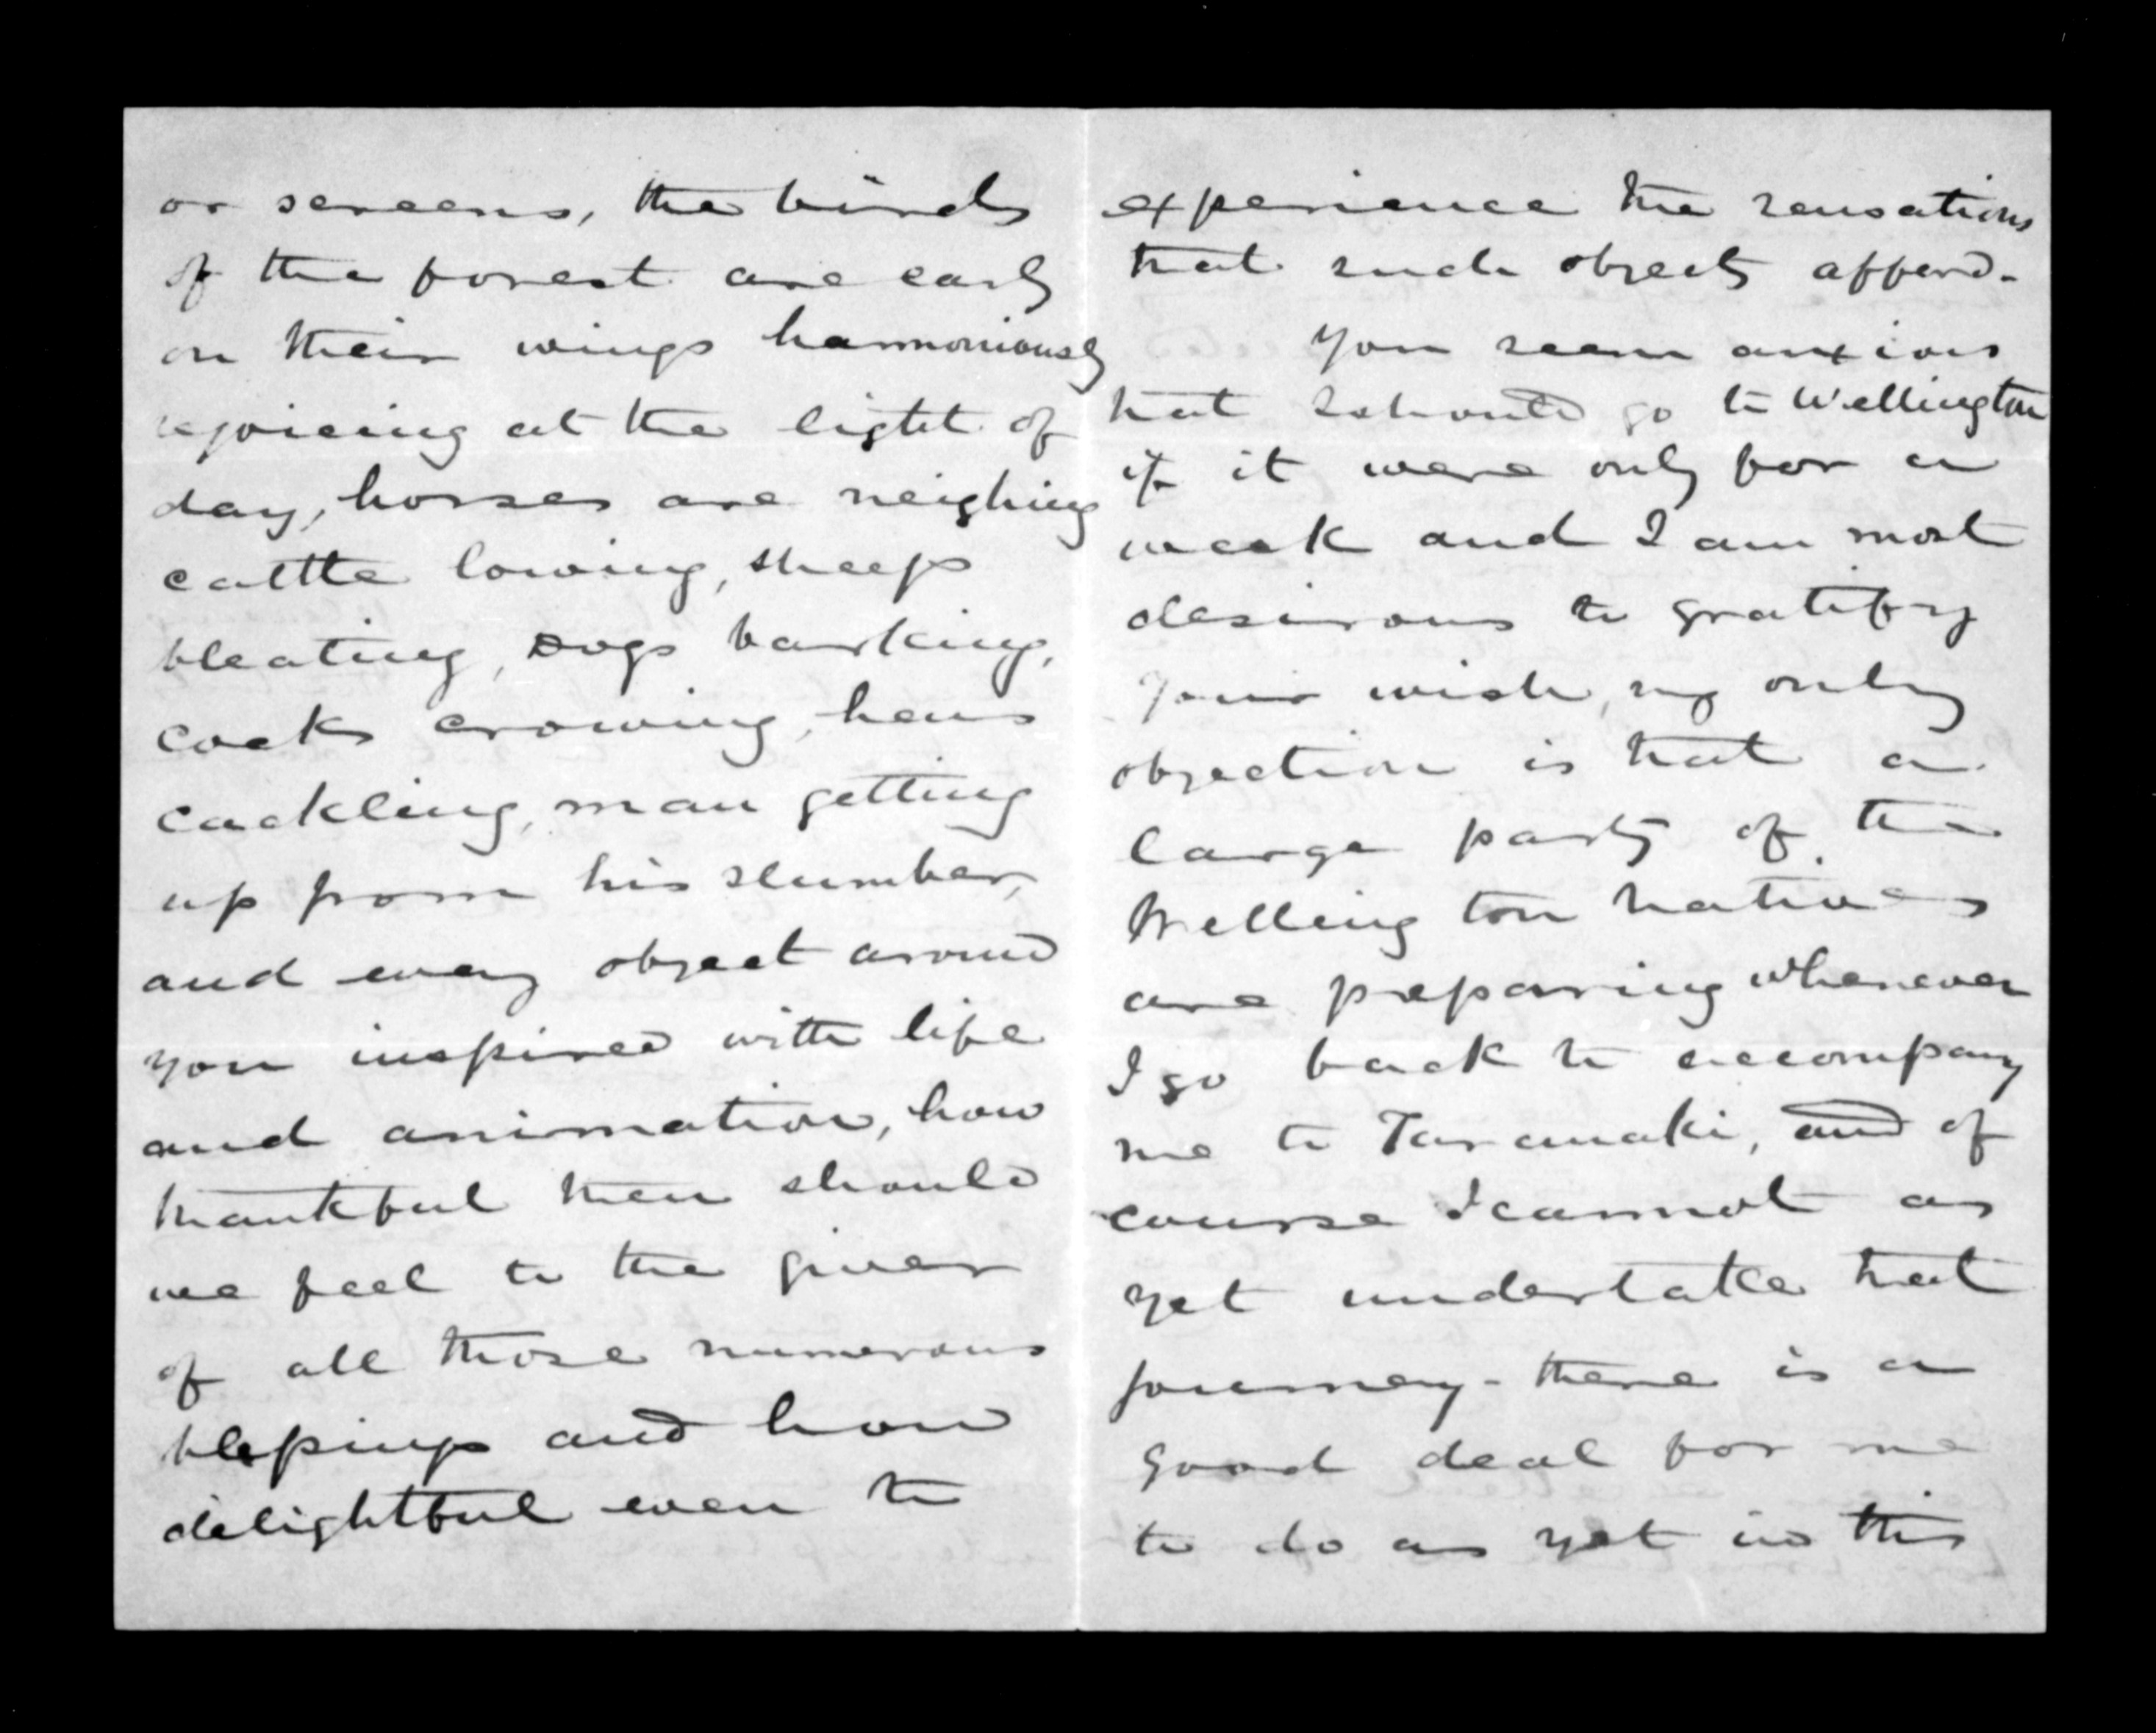 or screens, the birds
of the forest are early
on their wings harmoniously
rejoicing at the light of
day, horses are neighing
cattle lowing, sheep
bleating, Dogs barking,
cocks crowing, hens
cackling, man getting
up from his slumber,
and every object around
you inspired with life
and animation, how
thankful then should
we feel to the giver
of all those numerous
blessings and how
delightful even to
experience the sensations
that such objects afford.
You seem anxious
that I should go to Wellington
if it were only for a
week and I am most
desirous to gratify
your wish, my only
objection is that a
large party of the
Wellington natives
are preparing whenever
I go back to accompany
me to Taranaki, and of
course I cannot as
yet undertake that
journey - there is a
good deal for me
to do as yet in this